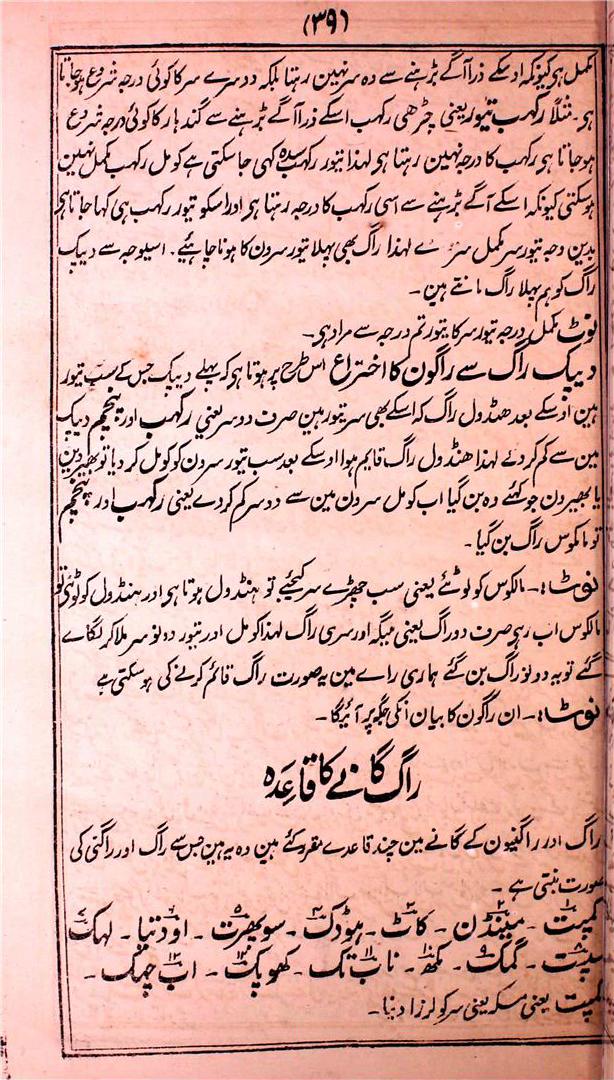 (۳۹)
مکمل ہی کیونکہ اوسکے ذرا آگے بڑہنے سے وہ سر نہین رہتا بلکہ دوسرے سر کا کوئی درجہ شروع ہوجاتا
ہی۔ مثلاً رکہب تیور یعنی چڑھی رکہب اسکے ذرا آگے بڑہنے سے گندہار کا کوئی درجہ شروع
ہوجاتا ہی رکہب کا درجہ نہین رہتا ہی لہذا تیور رکہب سدہ کہی جاسکتی ہے کومل رکہب مکمل نہین
ہوسکتی کیونکہ اسکے آگے بڑہنے سے اسی رکہب کا درجہ رہتا ہی اور اسکو تیور رکہب ہی کہا جاتا ہی
بدین وجہ تیور سر مکمل سر ہے لہذا راگ بھی پہلا تیور سرون کا ہونا چاہئیے۔ اسیوجہ سے دیپک
راگ کو ہم پہلا راگ مانتے ہین۔
نوٹ مکمل درجہ تیور سر کا تیور تم درجہ سے مراد ہی۔
دیپک راگ سے راگون کا اختراع اس طرح پر ہوتا ہی کہ پہلے دیپک جس کے سب تیور
ہین اوسکے بعد ھنڈول راگ کہ اسکے بھی سر تیور ہین صرف دو سر یعنی رکہب اور پنچم دیپک
مین سے کم کر دئے لہذا ھنڈول راگ قایم ہوا اوسکے بعد سب تیور سرون کو کومل کر دیا تو بھیروین
یا بھیرون جو کہئے وہ بن گیا اب کومل سرون مین سے دو سر کم کر دے یعنی رکہب اور پنچم
تو مالکوس راگ بن گیا۔
نوٹ:۔ مالکوس کو لوٹئے یعنی سب چڑے سر کیجئیے تو ہنڈول ہوتا ہی اور ہنڈول کو لوٹئی تو
مالکوس اب رہی صرف دو راگ یعنی میگہ اور سری راگ لہذا کومل اور تیور دونو سر ملا کر لگاے
گئے تو یہ دونو راگ بن گئے ہماری راے مین یہ صورت راگ قائم کرنے کی ہوسکتی ہے
نوٹ:۔ ان راگون کا بیان انکی جگہ پر آئیگا۔
راگ گانے کا قاعدہ
راگ اور راگنیون کے گانے مین چند قاعدے مقرر کئے ہین وہ یہ ہین جس سے راگ اور راگنی کی
صورت بنتی ہے۔
کمپت۔ مینڈن۔ کاٹ۔ ہوڈک۔ سوبھرت۔ اودتہا۔ لہک
سپت۔ گمک۔ مکھ۔ ناب تک۔ کھوپکت۔ اب چھک۔
کمپت یعنی مسکہ یعنی سر کو لرزا دینا۔